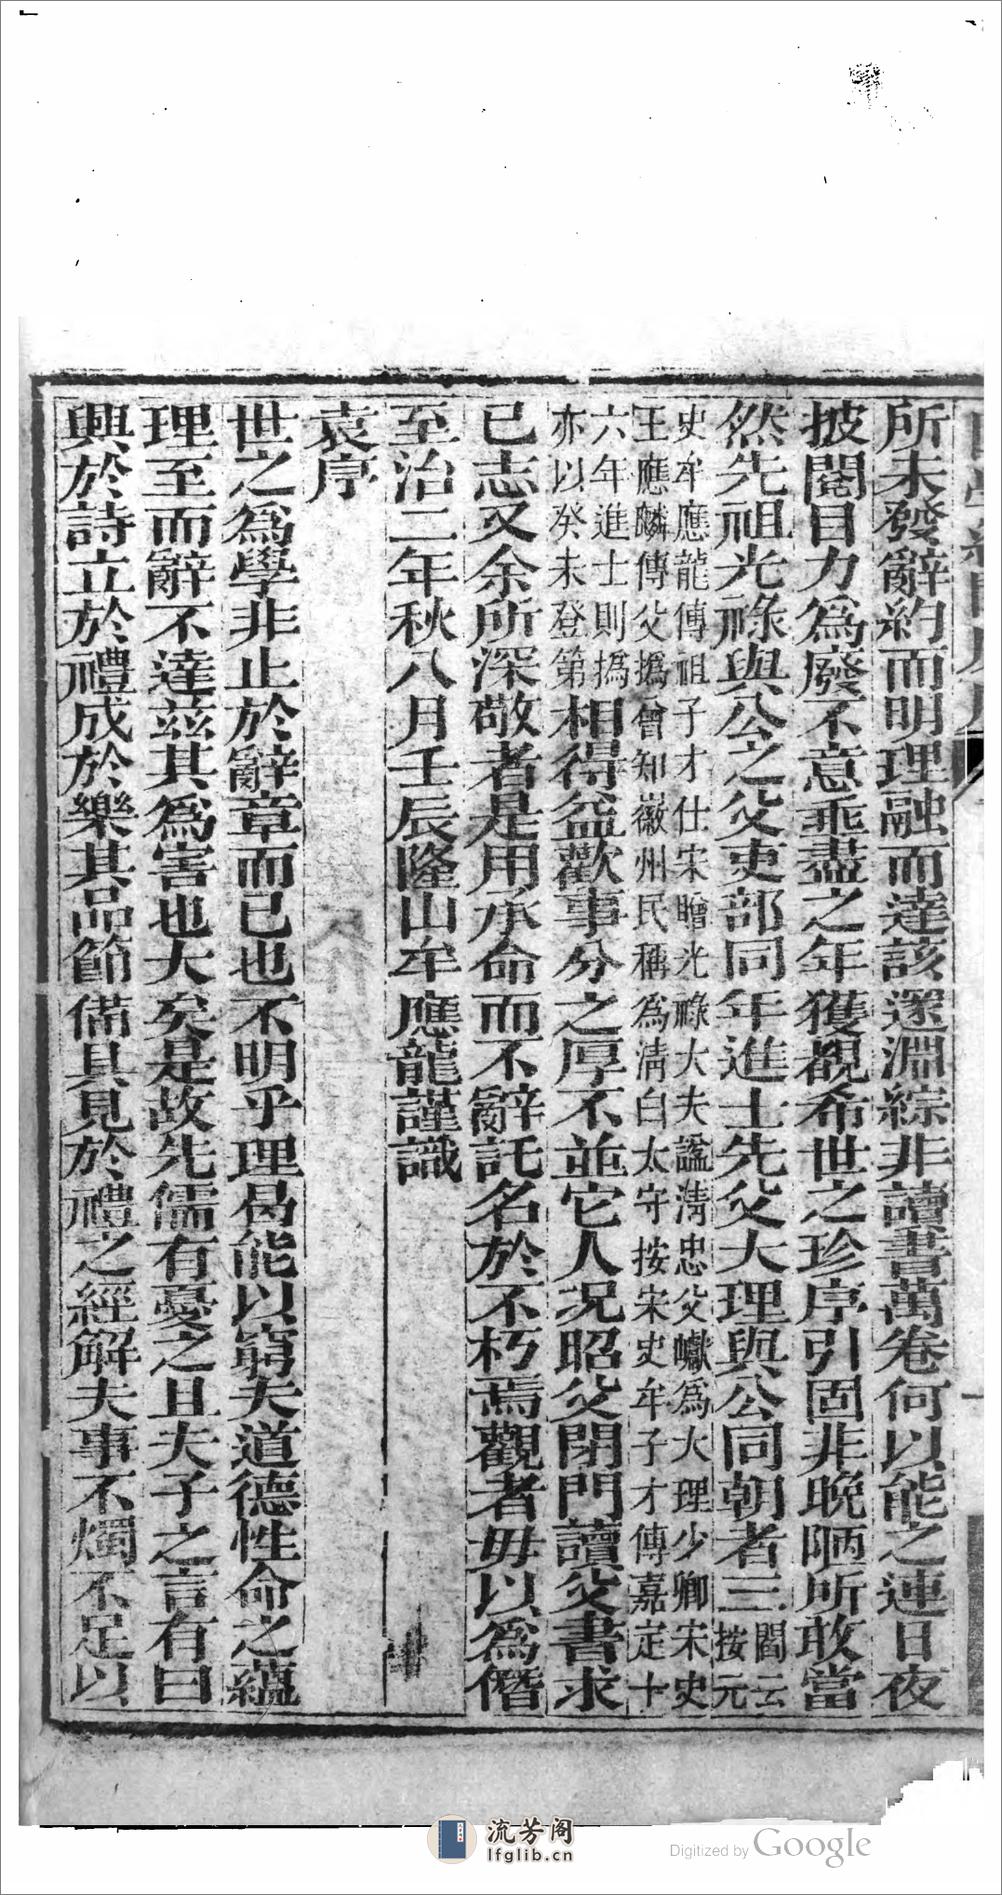 所未發辭約而明理融而達該邃淵綜非讀書萬卷何以能之連日夜
披閱目力爲廢不意垂盡之年獲覩希世之珍序引固非晚陋所敢當
然先祖光祿與公之父吏部同年進士先父大理與公同朝者三閻云按元
史牟應龍傳祖子才仕宋贈光祿大夫諡淸忠父巘爲大理少卿宋史
王應麟傳父撝曾知徽州民稱爲淸白太守按宋史牟子才傳嘉定十
六年進士則撝
亦以癸未登第相得益歡事分之厚不並它人況昭父閉門讀父書求
已志又余所深敬者是用承命而不辭託名於不朽焉觀者毋以爲僭
至治二年秋八月壬辰隆山牟應龍謹識
袁序
世之爲學非止於辭章而已也不明乎理曷能以窮夫道德性命之蘊
理至而辭不達茲其爲害也大矣是故先儒有憂之且夫子之言有曰
興於詩立於禮成於樂其品節備具見於禮之經解夫事不燭不足以
流芳阁
lfglib.cn
Digitized by Google